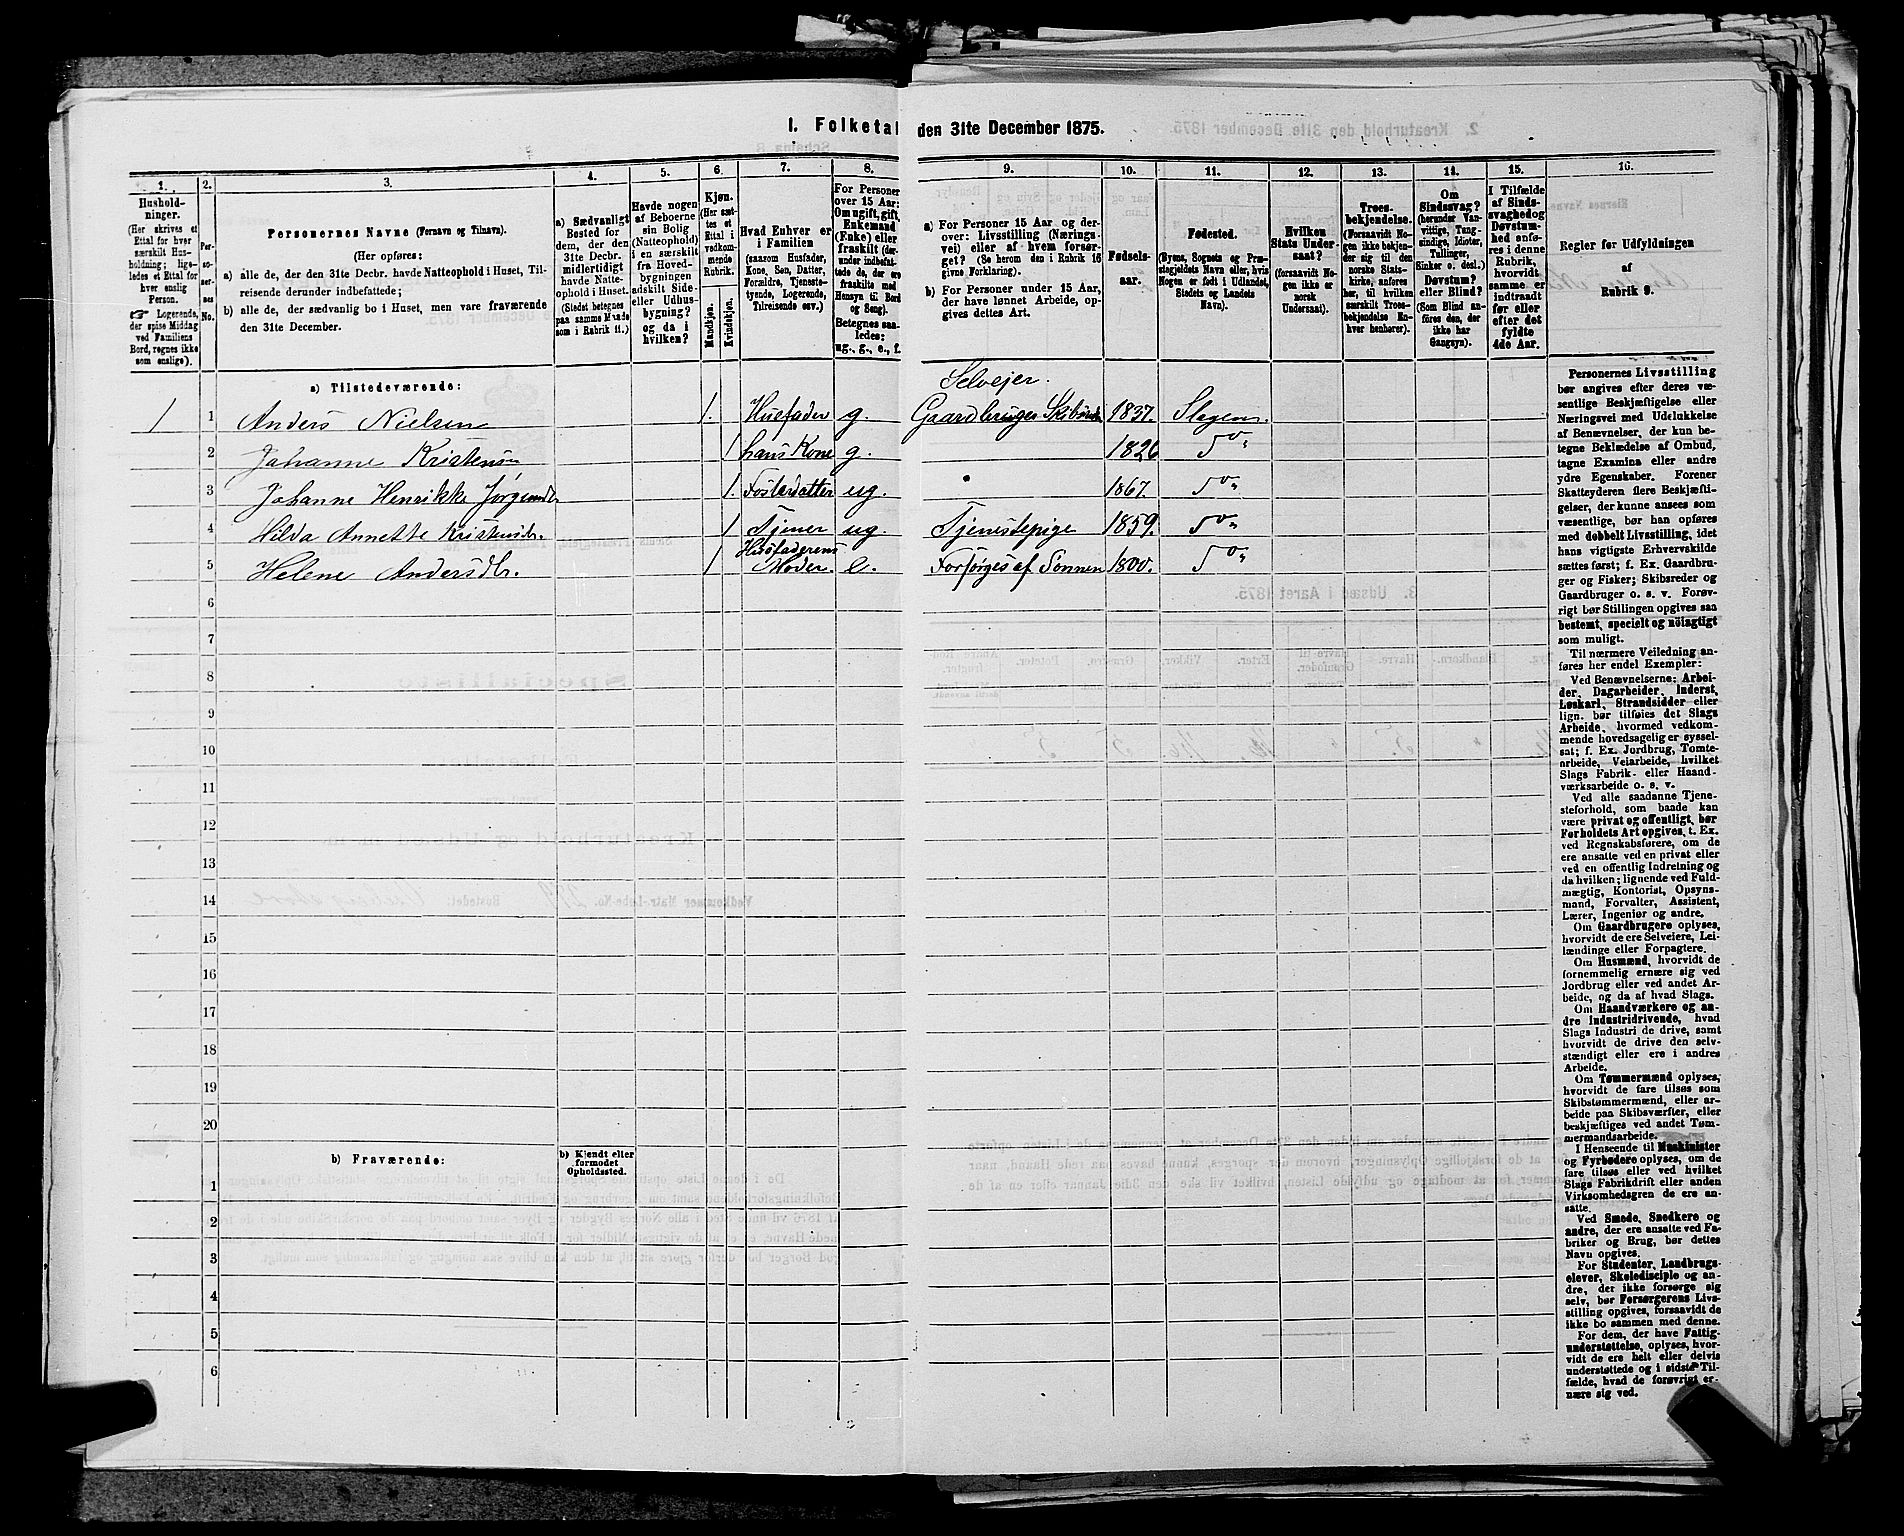 1. Folketal den 31te December 1875.
1.
Hushold-
ninger.
(Her skrives et
Ettal for hver
særskilt Hus-
holdning; lige-
ledes et Ettal for
hver enslig
Person.
☞ Logerende,
der spise Middag
ved Familiens
Bord, regnes ikke
som enslige).
2.
Per-
so-
ner-
nes
No.
3.
Personernes Navne (Fornavn og Tilnavn).
(Her opføres:
a) alle de, der den 31te Decbr. havde Natteophold i Huset, Til-
reisende derunder indbefattede;
b) alle de, der sædvanlig bo i Huset, men vare fraværende
den 31te December.
4.
a) Sædvanligt
Bosted for
dem, der den
31te Decbr.
midlertidigt
havde Natte-
ophold i Huset.
(Stedet betegnes
paa samme Maade
som i Rubrik 11.)
5.
Havde nogen
af Beboerne
sin Bolig
(Natteophold)
i en særskilt
fra Hoved-
bygningen
adskilt Side-
eller Udhus-
bygning?
og da i
hvilken?
6.
Kjøn.
(Her sæt-
tes et
Ettal i
vedkom-
mende
Rubrik.
Mandkjøn.
Kvindekjøn.
7.
Hvad Enhver er
i Familien
(saasom Husfader,
Kone, Søn, Datter,
Forældre, Tjeneste-
tyende, Logerende,
Tilreisende osv.)
8.
For Personer
over 15 Aar:
Om ugift, gift,
Enkemand
(Enke) eller
fraskilt (der-
under indbefat-
tede de, der ere
fraskilte med
Hensyn til Bord
og Seng).
Betegnes saa-
ledes:
ug., g., e., f.
9.
a) For Personer 15 Aar og der-
over: Livsstilling (Nærings-
vei) eller af hvem forsør-
get? (Se herom den i Rubrik 16
givne Forklaring).
b) For Personer under 15 Aar,
der have lønnet Arbeide, op-
gives dettes Art.
10.
Fødsels-
aar.
11.
Fødested.
(Byens, Sognets og Præ-
stegjeldets Navn eller, hvis
Nogen er født i Udlandet,
Stedets og Landets
Navn).
12.
Hvilken
Stats Under-
saat?
(forsaavidt No-
gen ikke er
norsk
Undersaat).
13.
Troes-
bekjendelse.
(Forsaavidt No-
gen ikke bekjen-
der sig til den
norske Stats-
kirke, anføres
her, til hvilken
særskilt Troes-
bekjendelse En-
hver henhører).
14.
Om
Sindssvag?
(herunder Van-
vittige, Tung-
sindige, Idioter,
Tullinger,
Sinker o. desl.)
Døvstum?
eller Blind?
(Som Blind an-
føres den, der
ikke har
Gangsyn).
15.
I Tilfælde
af Sinds-
svaghed og
Døvstum-
hed anfø-
res i denne
Rubrik,
hvorvidt
samme er
indtraadt
før eller
efter det
fyldte
4de Aar.
16.
Regler for Udfyldningen
af
Rubrik 9.
a) Tilstedeværende:
1 1 Anders Nielsen 1. Husfader g. Selveier. Gaardbruger 1837. Slagen.
2 Johanne Kristensen 1 hans Kone g. 1826 Do
3 Johanne Henrikke Jørgensdr 1. Fosterdatter ug. 1867. Do
4 Hilda Annette Kristensdr. 1 Tjener ug. Tjenestepige 1859. Do
5 Helene Andersdr. 1 Husfaderens Moder. e. Forsørges af Sønnen 1800. Do
6
7
8
9
10
11
12
13
14
15
16
17
18
19
20
b) Fraværende:
b) Kjendt eller
formodet
Opholdssted.
1
2
3
4
5
6
Personernes Livsstilling
bør angives efter deres væ-
sentlige Beskjæftigelse eller
Næringsvei med Udelukkelse
af Benævnelser, der kun be-
tegne Beklædelse af Ombud,
tagne Examina eller andre
ydre Egenskaber. Forener
Skatteyderen flere Beskjæfti-
gelser, der kunne ansees som
væsentlige, bør han opføres
med dobbelt Livsstilling, idet
hans vigtigste Erhvervskilde
sættes først; f. Ex. Gaardbru-
ger og Fisker; Skibsreder og
Gaardbruger o. s. v. Forøv-
rigt bør Stillingen opgives saa
bestemt, specielt og nöiagtigt
som muligt.
Til nærmere Veiledning an-
føres her endel Exempler:
Ved Benævnelserne: Arbei-
der, Dagarbeider, Inderst,
Løskarl, Strandsidder eller
lign. bør tilføies det Slags
Arbeide, hvormed vedkom-
mende hovedsagelig er syssel-
sat; f. Ex. Jordbrug, Tomte-
arbeide, Veiarbeide, hvilket
Slags Fabrik- eller Haand-
værksarbeide o. s. v.
Ved alle saadanne Tjene-
steforhold, som baade kan
være privat og offentligt, bør
Forholdets Art opgives, t. Ex.
ved Regnskabsførere, om de
ere ansatte ved en privat eller
ved en offentlig Indretning og
da hvilken; lignende ved Fuld-
mægtig, Kontorist, Opsyns-
mand, Forvalter, Assistent,
Lærer, Ingeniør og andre.
Om Gaardbrugere oplyses,
hvorvidt de ere Selveiere, Lei-
lændinge eller Forpagtere.
Om Husmænd, hvorvidt de
fornemmelig ernære sig ved
Jordbrug eller ved andet Ar-
beide, og da af hvad Slags.
Om Haandværkere og an-
dre Industridrivende, hvad
Slags Industri de drive, samt
hvorvidt de drive den selv-
stændigt eller ere i andres
Arbeide.
Om Tømmermænd oplyses,
hvorvidt de fare tilsøs som
Skibstømmermænd, eller ar-
beide paa Skibsværfter, eller
beskjæftiges ved andet Tøm-
mermandsarbeide.
I Henseende til Maskinister
og Fyrbødere oplyses, om de
fare tilsøs eller ved hvilket
Slags Fabrikdrift eller anden
Virksomhedsgren de ere an-
satte.
Ved Smede, Snedkere og
andre, der ere ansatte ved Fa-
briker og Brug, bør dettes
Navn opgives.
For Studenter, Landbrugs-
elever, Skoledisciple og an-
dre, der ikke forsørge sig
selv, bør Forsørgerens Livs-
stilling opgives, forsaavidt de
ikke bo sammen med denne.
For dem, der have Fattig-
understøttelse, oplyses, hvor-
vidt de ere helt eller delvis
understøttede og i sidste Til-
fælde, hvad de forøvrigt er-
nære sig ved.